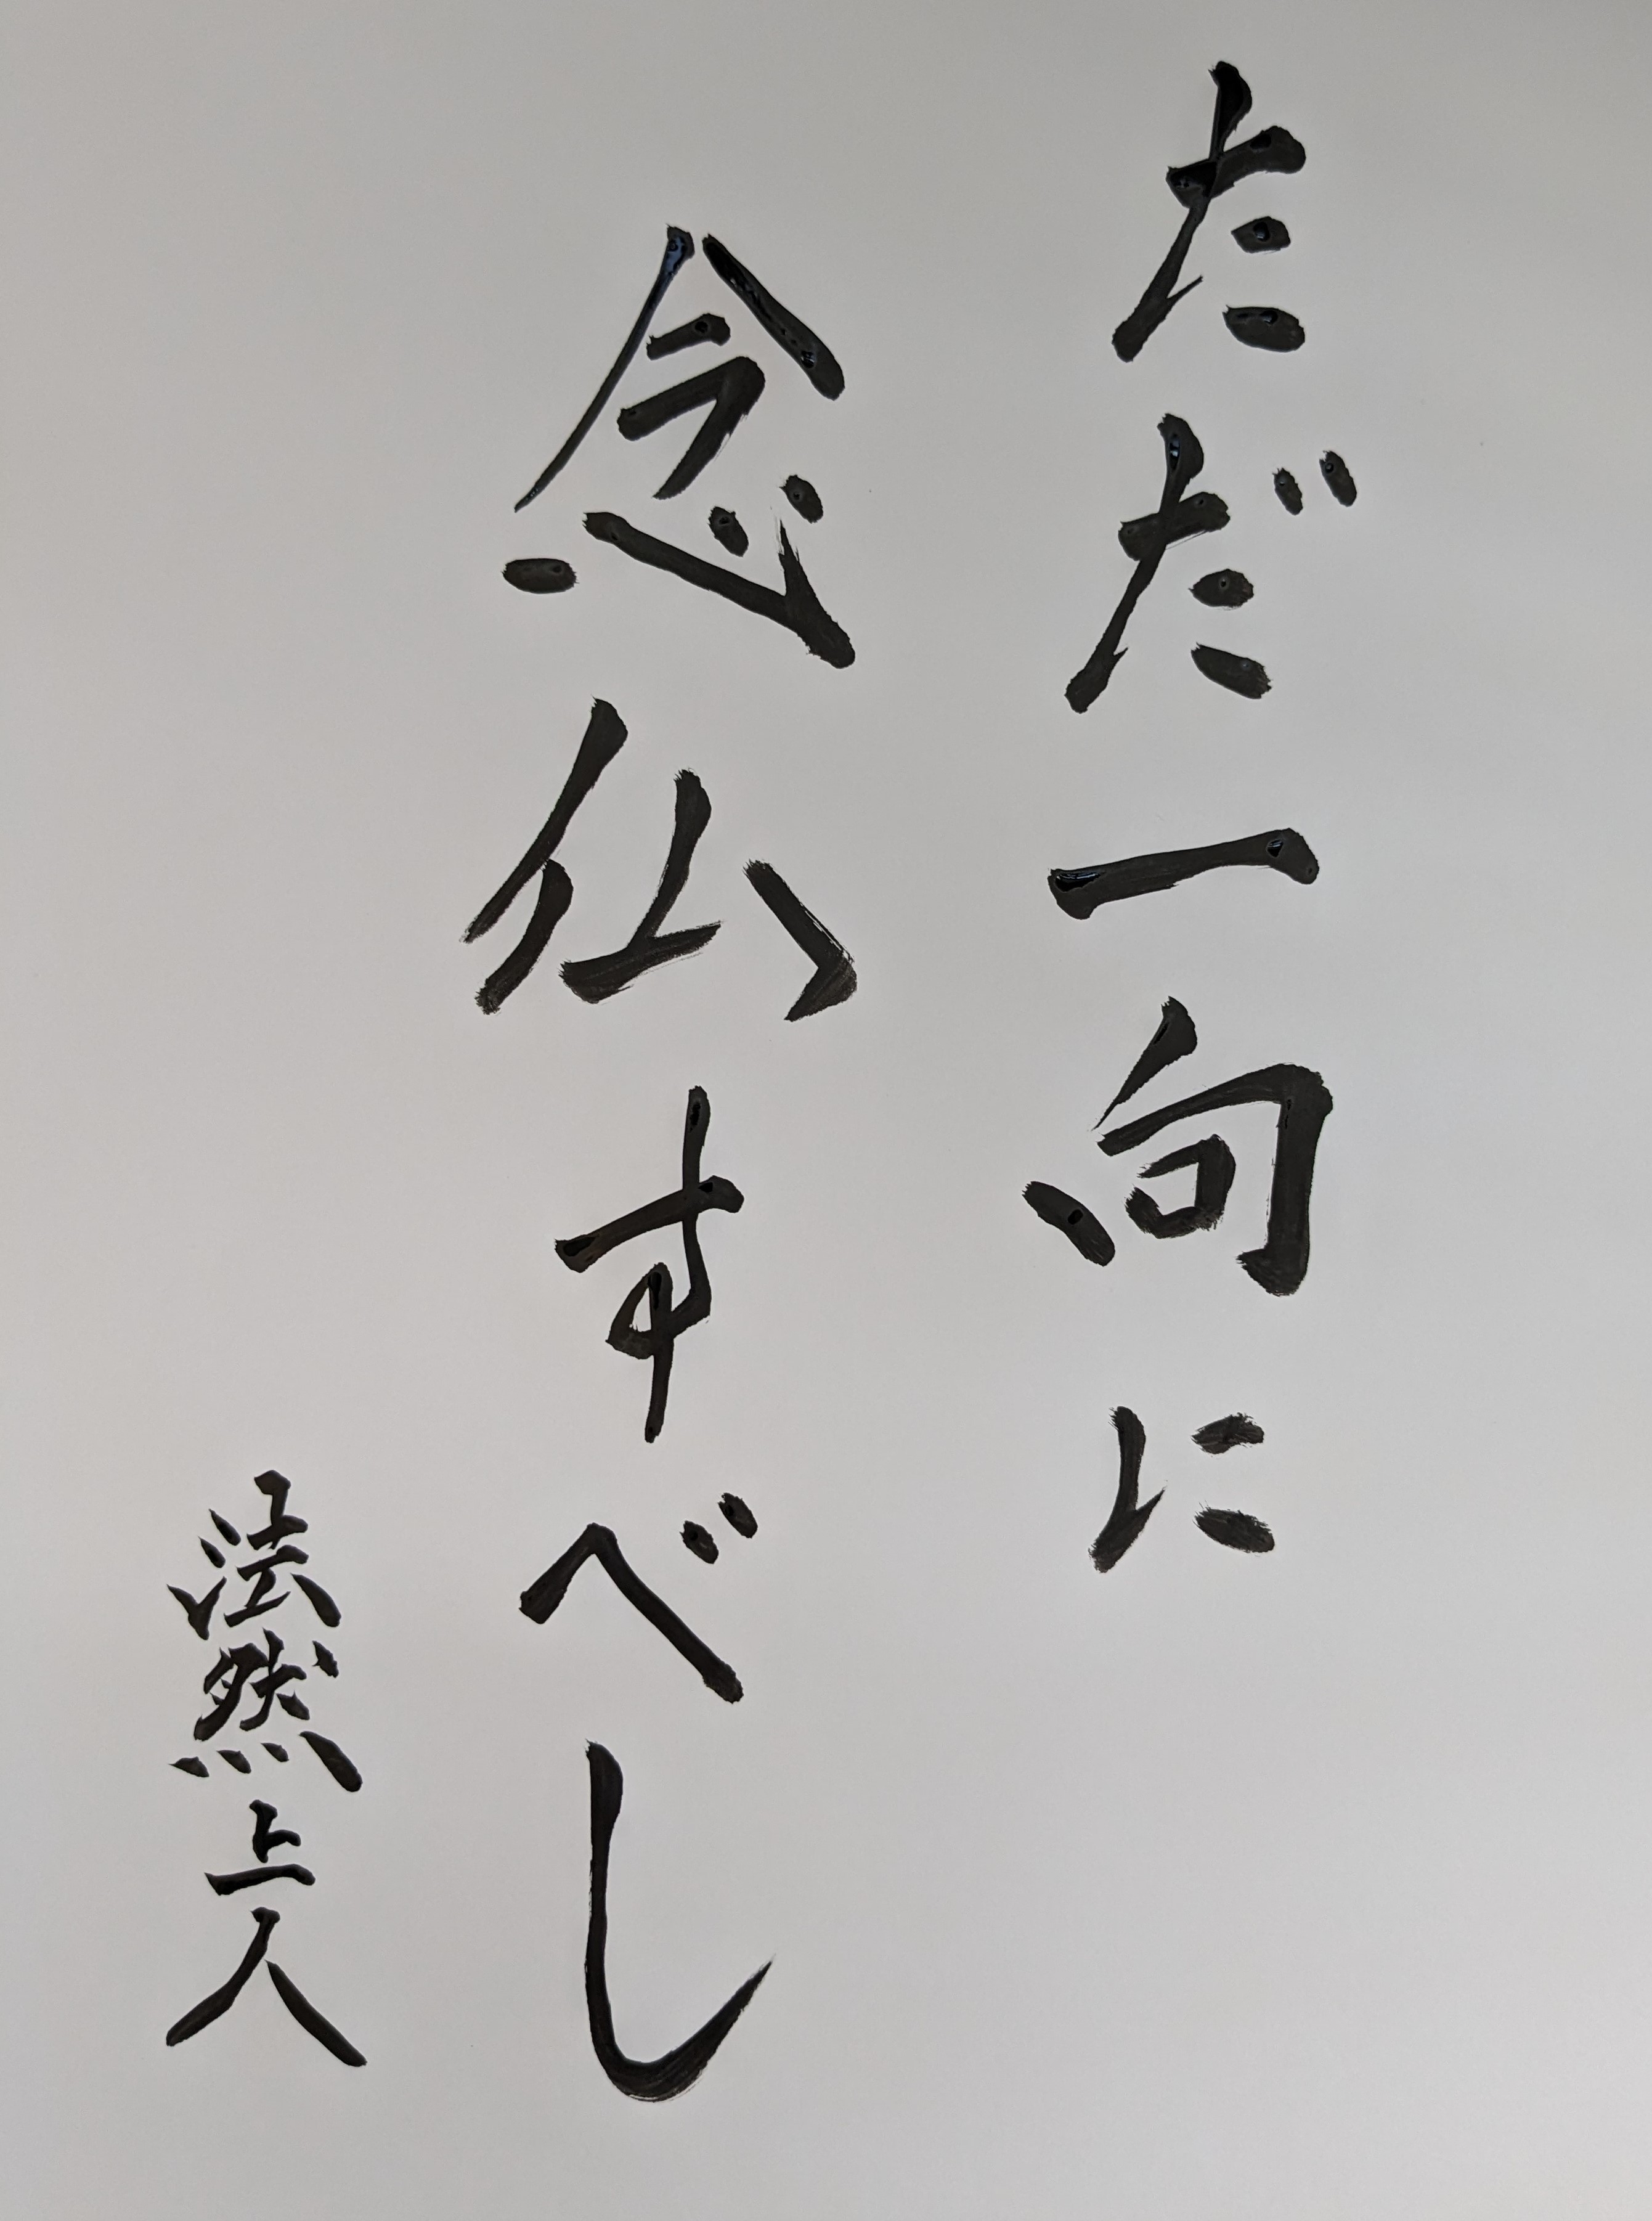 ただ一向に
念仏すべし
法然上人